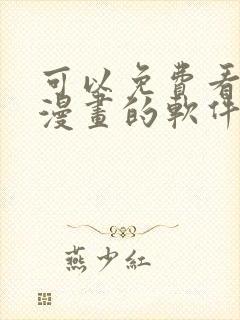 可以免費看
漫畫的軟件
燕少紅